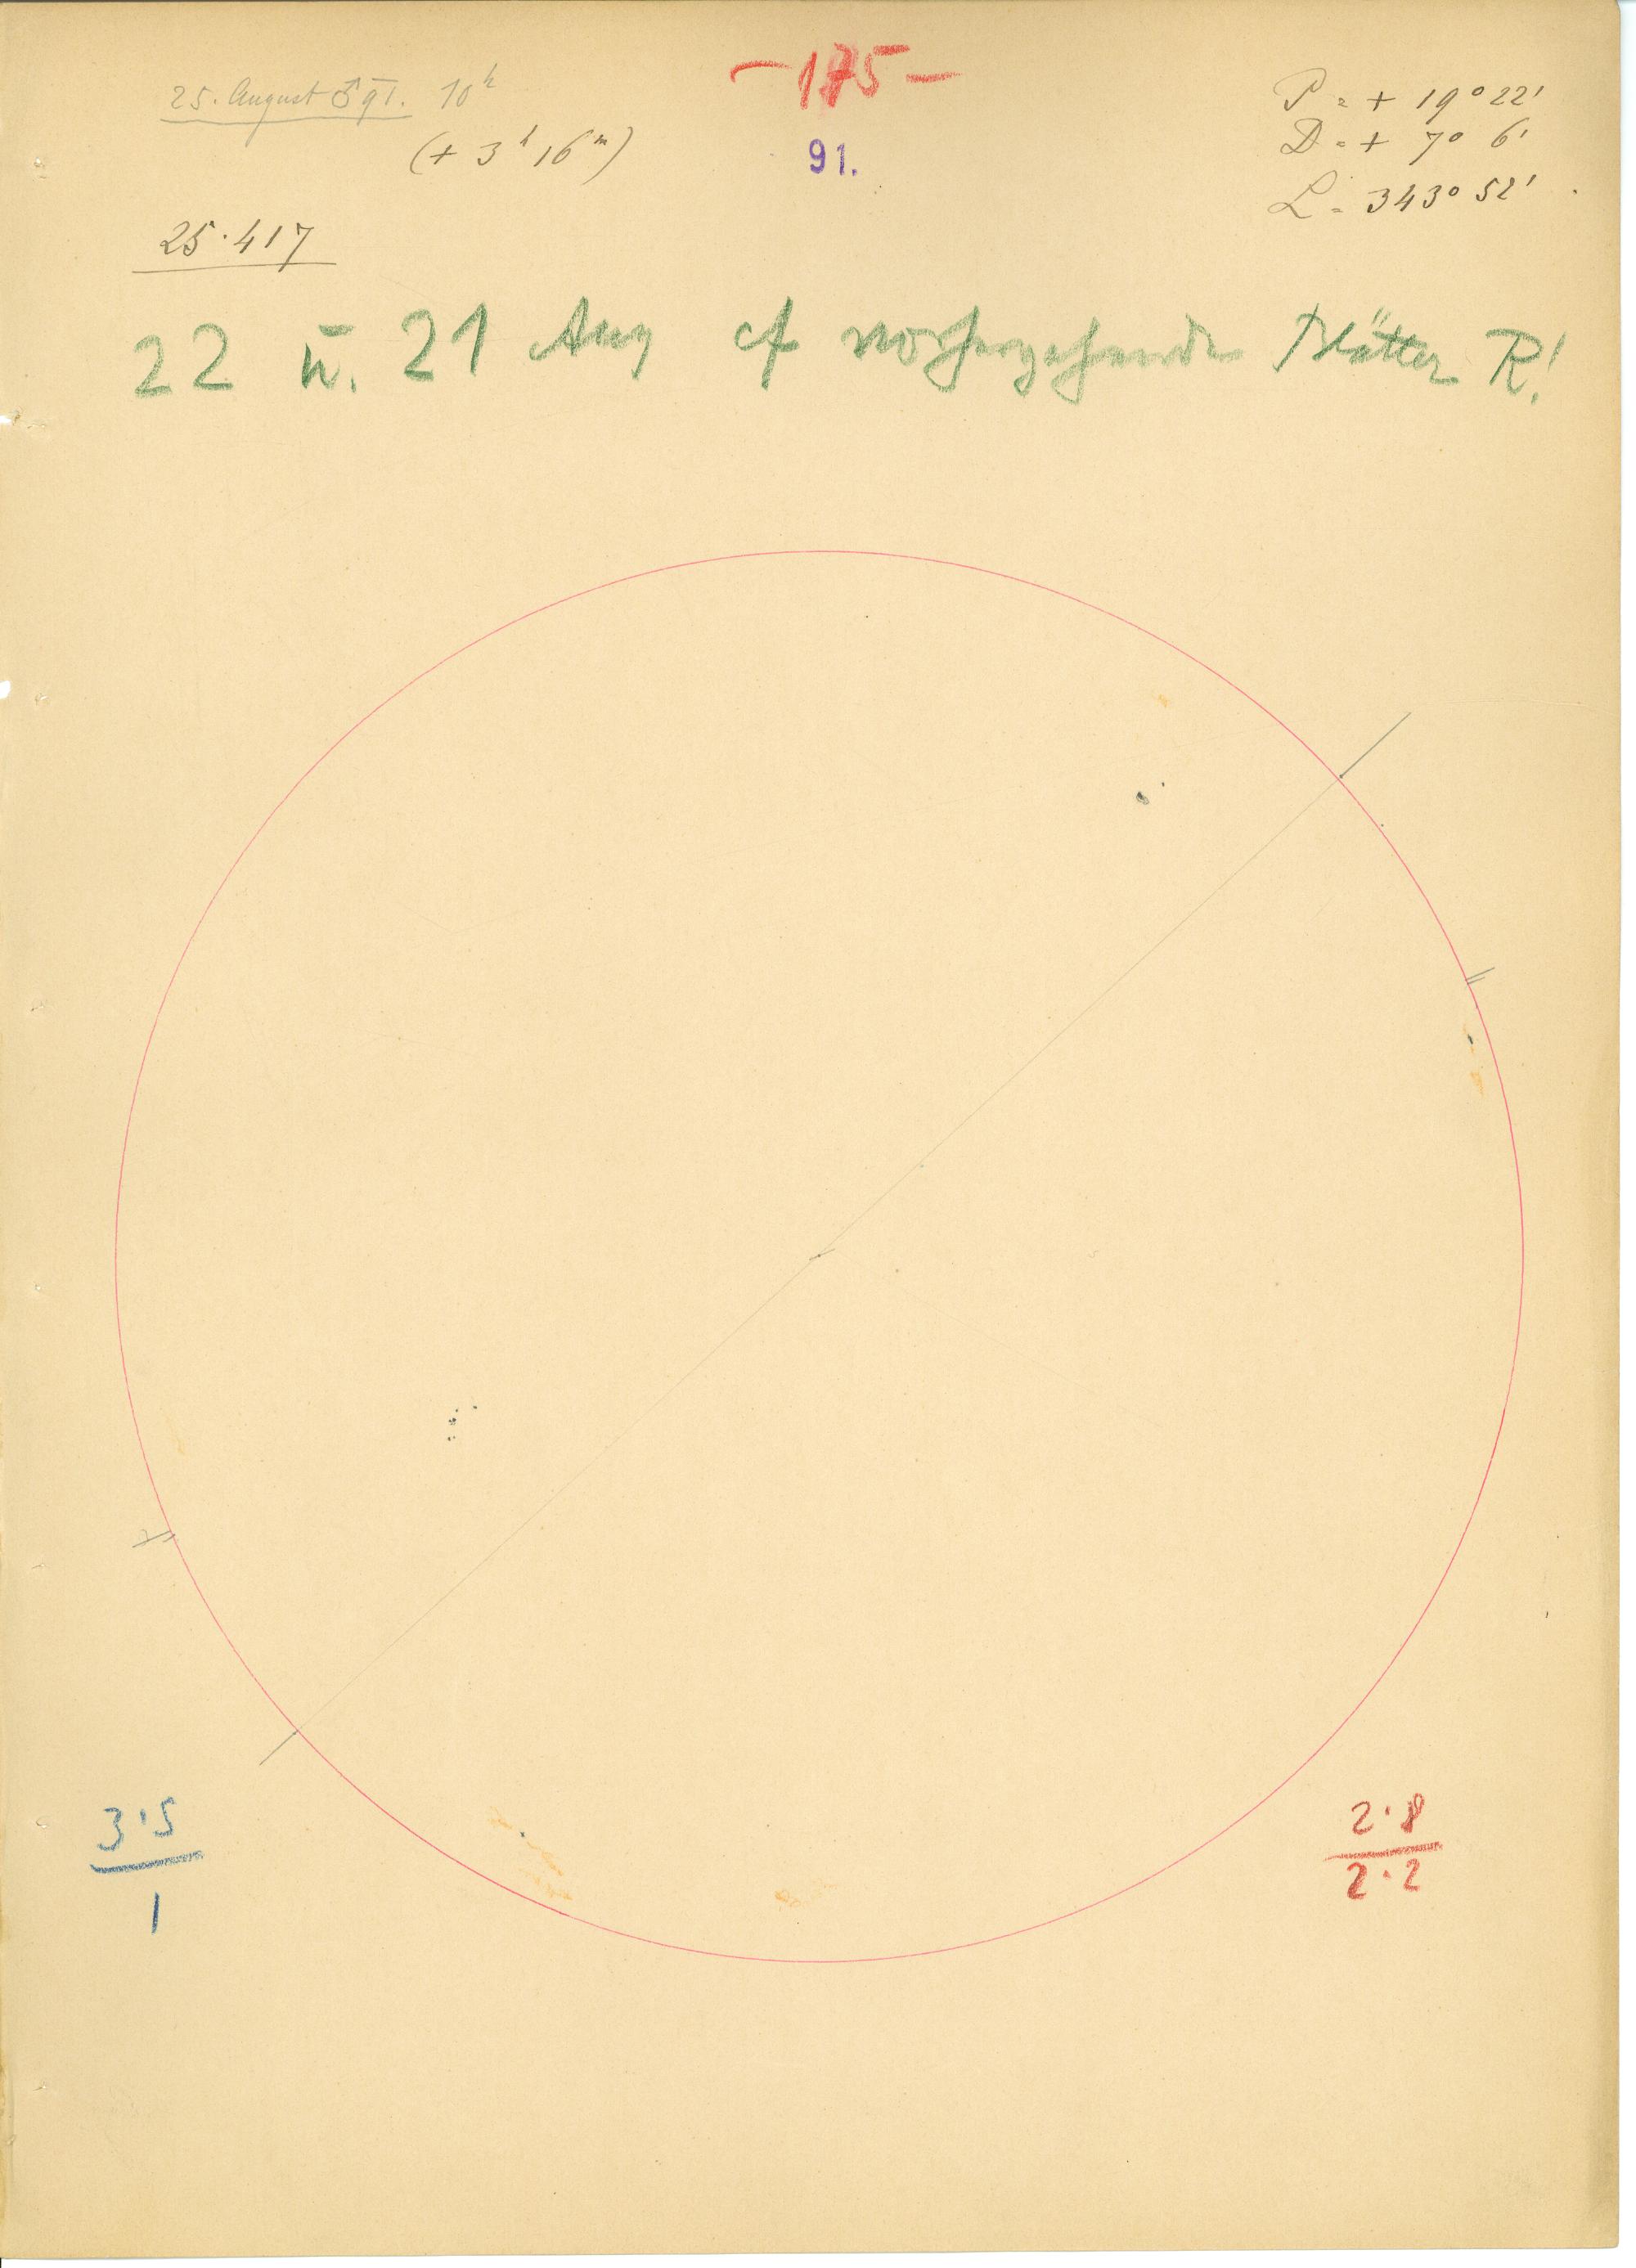 25. August ♂ 91. 10ʰ
(+ 3ʰ 16ᵐ)
25.417
— 175 —
91.
P = + 19° 22'
D = + 7° 6'
L = 343° 52'
22 u. 21 Aug cf vorhergehende Blätter R!
3.5
1
2.8
2.2